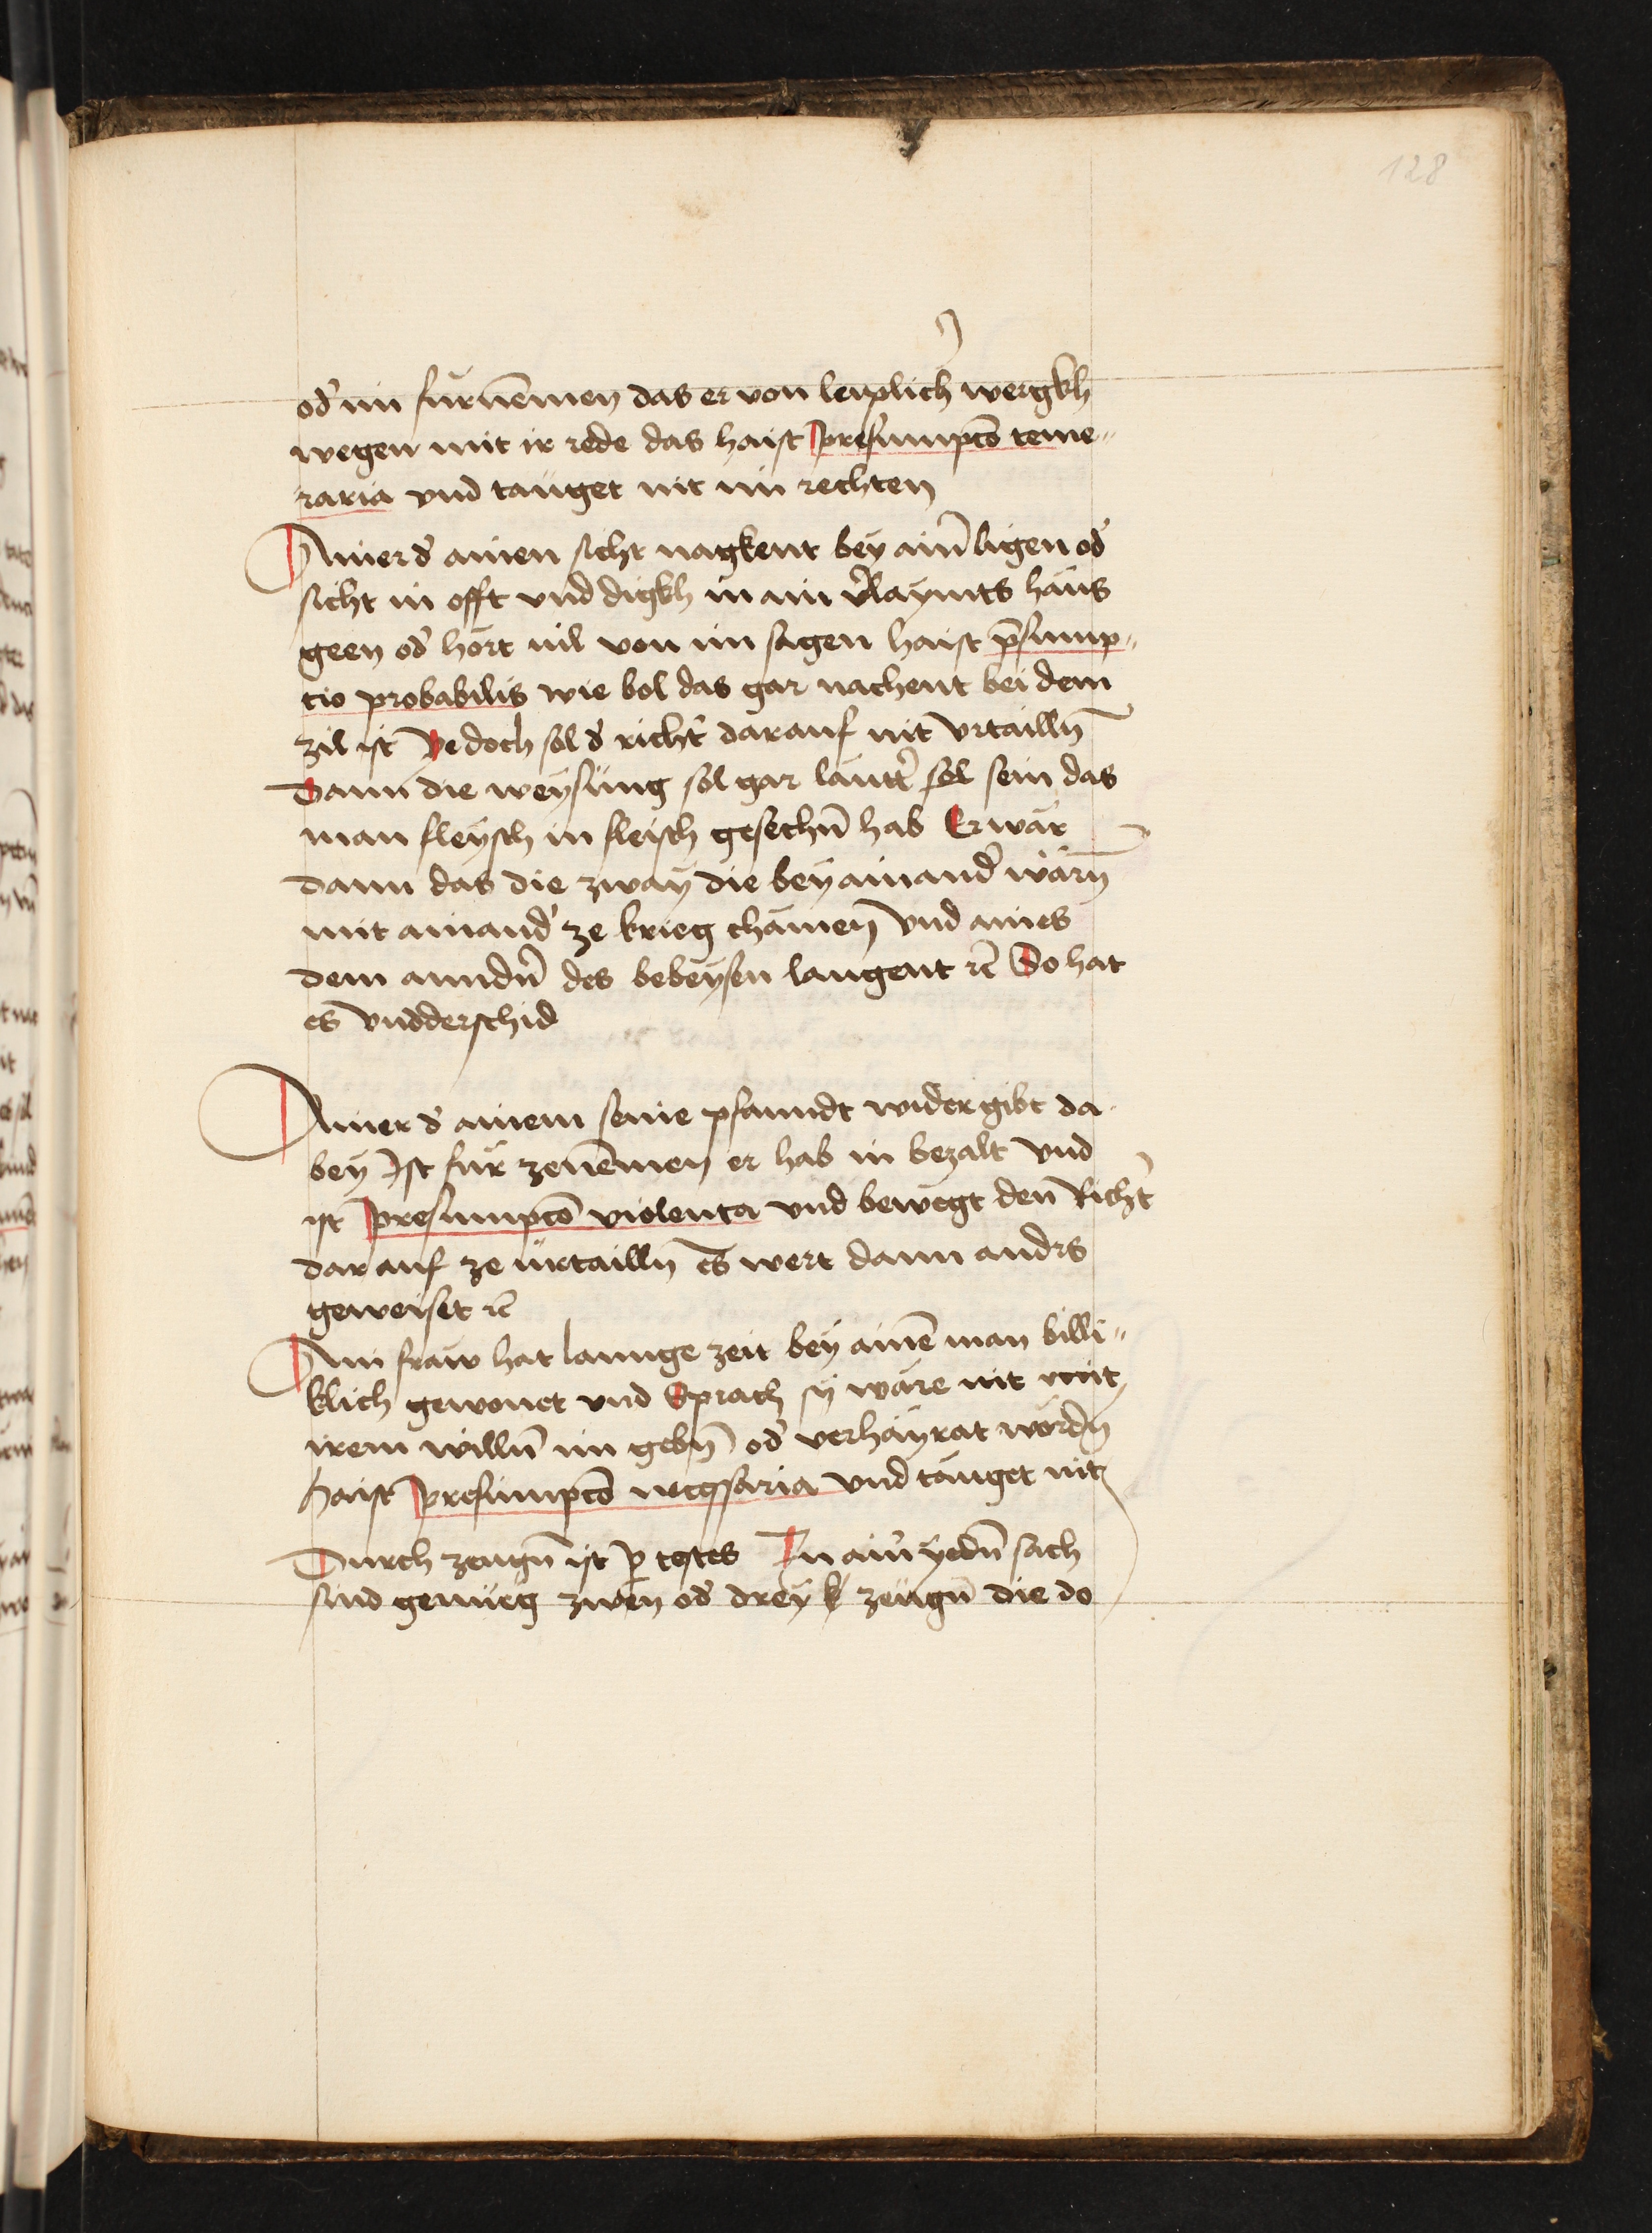 128
od' im fürnemen das er von leiplich' wergkh
wegen mit ir rede das haist presumpcō teme„
raria vnd tauget nit im rechten
Ainer d' ainen sicht nagkent bey ain' ligen od'
sicht in offt vnd digkh in ain v'laymts haus
geen od' hört uil von im sagen haist p̄sump„
tio probabilis wie bol das gar nachent bei dem
zil ist yedoch sol d' richt' darauf nit vrtailln̄
Dann die weysung sol gar lautt' sol sein das
man fleysch in fleisch gesechn̄ hab Er wär
dann das die zway die bey ainand' wärn̄
mit ainand' ze krieg chämen vnd aines
dem anndn̄ des bebeysen laugent rc̄ So hat
es vndderschid
Ainer d' ainem seine pfanndt wider gibt da
bey Ist für zenemen er hab in bezalt vnd
ist presumpcō violenta vnd bewegt den Richt'
darauf ze urtailln̄ es wert dann andrs
geweiset rc̄
Ain fraw hat lannge zeit bey ainē man billi„
klich gewonet vnd Sprach sy wäre nit mit
irem willn̄ im gebn̄ od' verhayrat wordn̄
haist presumpcō necessaria vnd tauget nit
Durch zeugn̄ ist p̱ testes In ain' yedn̄ sach
sind genueg zwen od' drey zeugn̄ die do